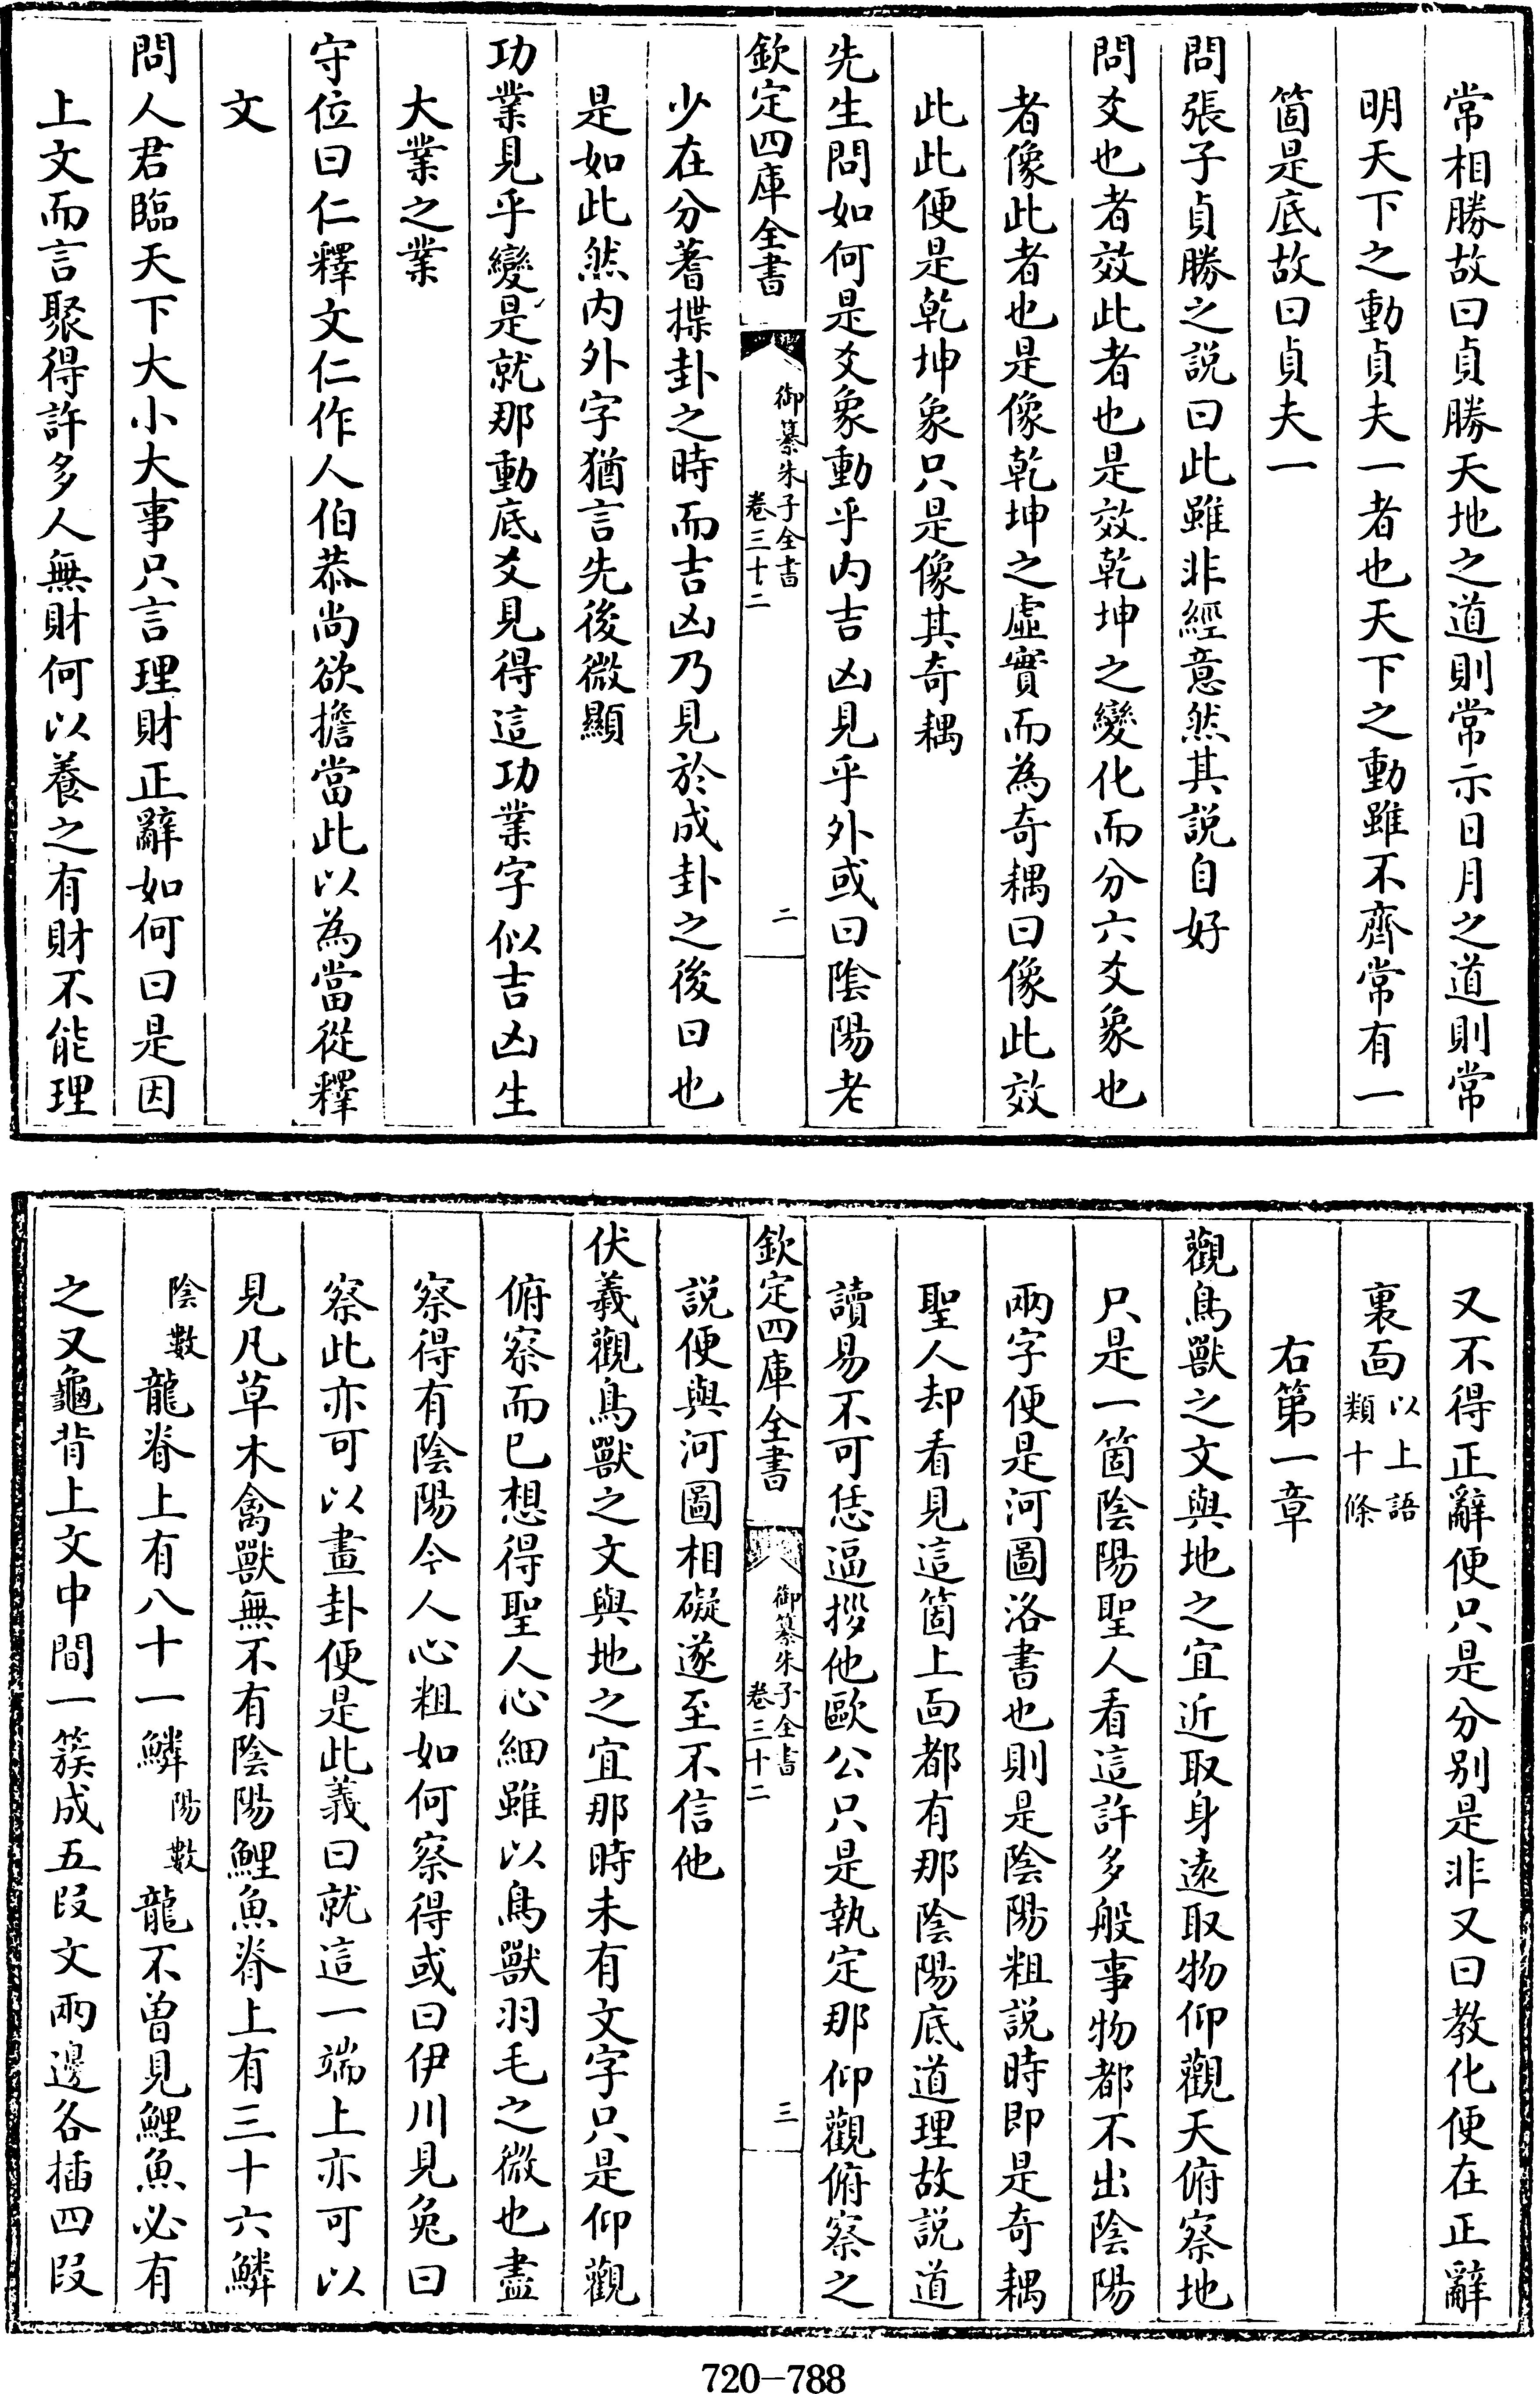 常相勝故曰貞勝天地之道則常示日月之道則常
明天下之動貞夫一者也天下之動雖不齊常有一
箇是底故曰貞夫一
問張子貞勝之説曰此雖非經意然其説自好
問爻也者效此者也是效乾坤之變化而分六爻象也
者像此者也是像乾坤之虛實而為奇耦曰像此效
此此便是乾坤象只是像其奇耦
先生問如何是爻象動乎內吉凶見乎外或曰陰陽老
欽定四庫全書
御纂朱子全書
卷三十二
二
少在分蓍揲卦之時而吉凶乃見於成卦之後曰也
是如此然內外字猶言先後微顯
功業見乎變是就那動底爻見得這功業字似吉凶生
大業之業
守位曰仁釋文仁作人伯恭尚欲擔當此以為當從釋
文
問人君臨天下大小大事只言理財正辭如何曰是因
上文而言聚得許多人無財何以養之有財不能理
又不得正辭便只是分别是非又曰教化便在正辭
裏面
以上語
類十條
右第一章
觀鳥獸之文與地之宜近取身逺取物仰觀天俯察地
只是一箇陰陽聖人看這許多般事物都不出陰陽
兩字便是河圖洛書也則是陰陽粗説時即是奇耦
聖人却看見這箇上面都有那陰陽底道理故説道
讀易不可恁逼拶他歐公只是執定那仰觀俯察之
欽定四庫全書
御纂朱子全書
卷三十二
三
説便與河圖相礙遂至不信他
伏羲觀鳥獸之文與地之宜那時未有文字只是仰觀
俯察而已想得聖人心細雖以鳥獸羽毛之微也盡
察得有陰陽今人心粗如何察得或曰伊川見兔曰
察此亦可以畫卦便是此義曰就這一端上亦可以
見凡草木禽獸無不有陰陽鯉魚脊上有三十六鱗
陰數
龍脊上有八十一鱗
陽數
龍不曾見鯉魚必有
之又龜背上文中間一簇成五段文兩邊各插四段
720-788